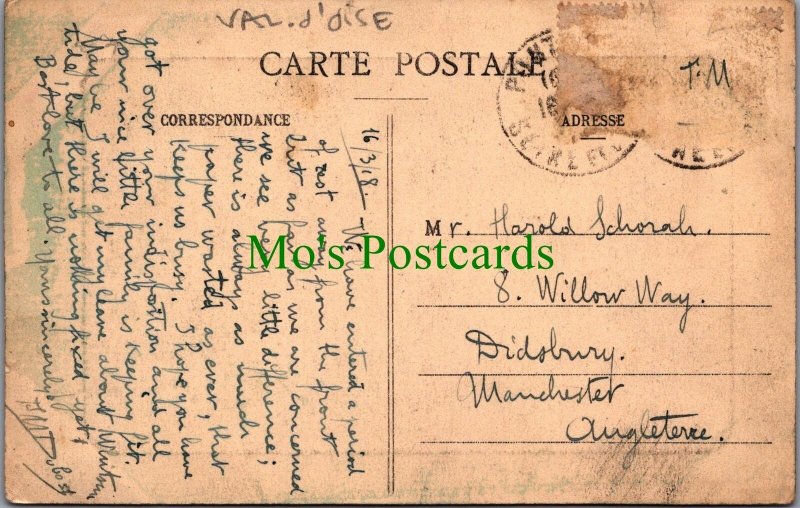 VAL. d'OISE
CARTE POSTALE
CORRESPONDANCE
ADRESSE
T.M
16/3/18. We have entered a period
of rest away from the front
but as far as we are concerned
we see very little difference;
there is always as much
paper wasted as ever, that
keeps us busy. I hope you have
got over your indisposition and all
your nice little family is keeping fit.
Maybe I will get my leave about Whitsun
tide, but there is nothing fixed yet.
Best love to all. Yours sincerely
Mr. Harold Schorah.
8. Willow Way.
Didsbury.
Manchester
Angleterre.
Mo's Postcards